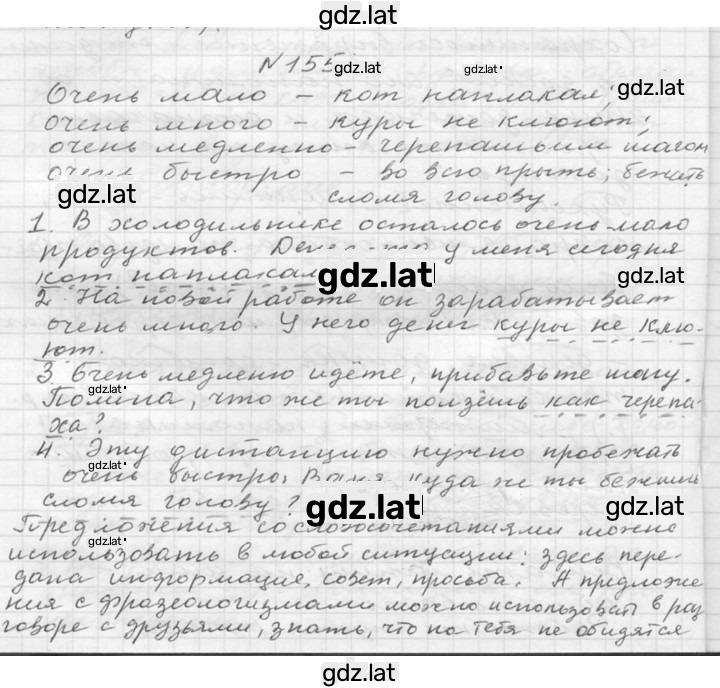 gdz.lat
N155
gdz.lat
gdz.lat
Очень мало – кот наплакал;
gdz.lat
очень много – куры не клюют;
очень медленно – черепашьим шагом
очень быстро – во всю прыть; бежать
gdz.lat
сломя голову.
1. В холодильнике осталось очень мало
продуктов. у меня сегодня
кот наплакал
gdz.lat
gdz.lat
2. На новой работе он зарабатывает
очень много. У него денег куры не клю-
ют.
3. Очень медленно идёте, прибавьте шагу.
gdz.lat
Полина, что же ты ползёшь как черепа-
ха?
4. Эту дистанцию нужно пробежать
gdz.lat
очень быстро. куда же ты бежишь
сломя голову?
gdz.lat
gdz.lat
Предложения со словосочетаниями можно
gdz.lat
использовать в любой ситуации: здесь пере-
дана информация, совет, просьба. А предложе
ния с фразеологизмами можно использовать в раз
говоре с друзьями, знать, что на тебя не обидятся
gdz.lat